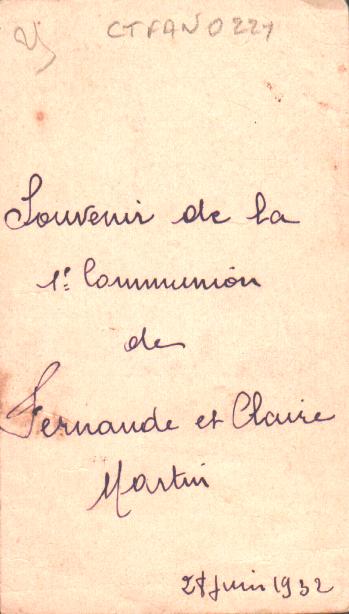 CTFAN0227
Souvenir de la
1e Communion
de
Fernande et Claire
Martin
Juin 1932